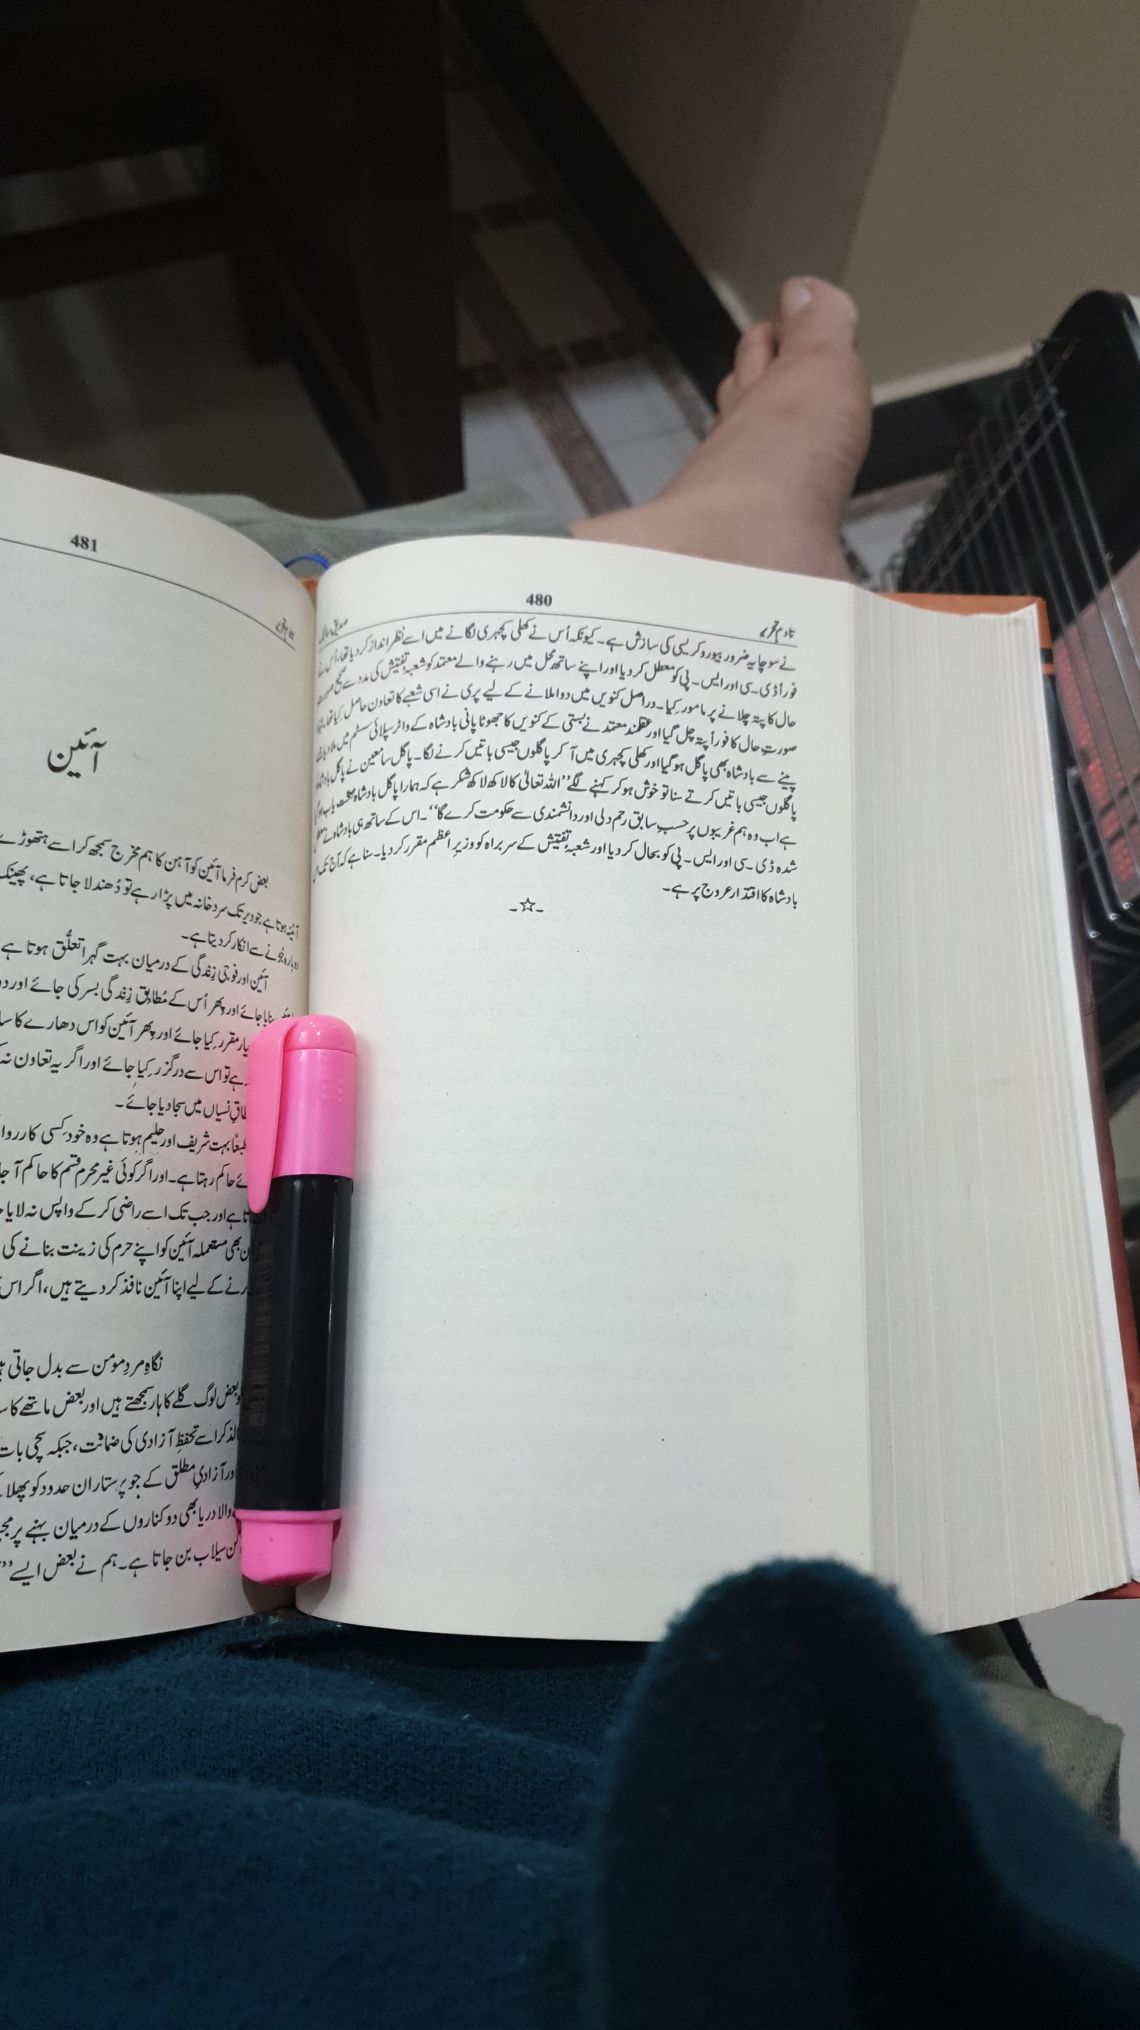 480
تادمِ تحریر
نے سوچا یہ ضرور بیوروکریسی کی سازش ہے۔ کیونکہ اُس نے کھلی کچہری لگانے میں اسے نظر انداز کر دیا تھا، اُس نے
فوراً ڈی۔سی اور ایس۔پی کو معطل کر دیا اور اپنے ساتھ محل میں رہنے والے معتمد کو شعبۂ تفتیش کی مدد سے صحیح صورت
حال کا پتہ چلانے پر مامور کیا۔ دراصل کنویں میں دوا ملانے کے لیے پری نے اسی شعبے کا تعاون حاصل کیا تھا
صورتِ حال کا فوراً پتہ چل گیا اور عقلمند معتمد نے بستی کے کنویں کا جھوٹا پانی بادشاہ کے واٹر سپلائی سسٹم میں ملا دیا
پینے سے بادشاہ بھی پاگل ہو گیا اور کھلی کچہری میں آ کر پاگلوں جیسی باتیں کرنے لگا۔ پاگل سامعین نے پاگل بادشاہ
پاگلوں جیسی باتیں کرتے سنا تو خوش ہو کر کہنے لگے ’’اللہ تعالیٰ کا لاکھ لاکھ شکر ہے کہ ہمارا پاگل بادشاہ صحت یاب
ہے اب وہ ہم غریبوں پر حسبِ سابق رحم دلی اور دانشمندی سے حکومت کرے گا‘‘۔ اس کے ساتھ ہی بادشاہ نے معطل
شدہ ڈی۔سی اور ایس۔پی کو بحال کر دیا اور شعبۂ تفتیش کے سربراہ کو وزیرِ اعظم مقرر کر دیا۔ سنا ہے کہ آج تک
بادشاہ کا اقتدار عروج پر ہے۔
-☆-
481
آئین
بعض کرم فرما آئین کو آہن کا ہم مخرج سمجھ کر اسے ہتھوڑے
آئینہ ہوتا ہے جو دیر تک سرد خانہ میں پڑا رہے تو دُھندلا جاتا ہے، پھینک
دوبارہ جُونے سے انکار کر دیتا ہے۔
آئین اور فوجی زندگی کے درمیان بہت گہرا تعلُّق ہوتا ہے
بنایا جائے اور پھر اُس کے مُطابق زندگی بسر کی جائے اور
مقرر کیا جائے اور پھر آئین کو اس دھارے کا
ہے تو اس سے درگزر کیا جائے اور اگر یہ تعاون نہ
طاقِ نسیاں میں سجا دیا جائے۔
طبعًا بہت شریف اور حلیم ہوتا ہے وہ خود کسی
حاکم رہتا ہے۔ اور اگر کوئی غیر محرم قسم کا حاکم آ
ہے اور جب تک اسے راضی کر کے واپس نہ لایا
بھی مستعملہ آئین کو اپنے حرم کی زینت بنانے کی
کے لیے اپنا آئین نافذ کر دیتے ہیں، اگر اس
نگاہِ مردِ مومن سے بدل جاتی
بعض لوگ گلے کا ہار سمجھتے ہیں اور بعض ماتھے کا
اسے تحفظِ آزادی کی ضمانت، جبکہ سچی بات
اور آزادیِ مطلق کے جو پرستار ان حدود کو پھلا
والا دریا بھی دو کناروں کے درمیان بہنے پر
سیلاب بن جاتا ہے۔ ہم نے بعض ایسے ’’